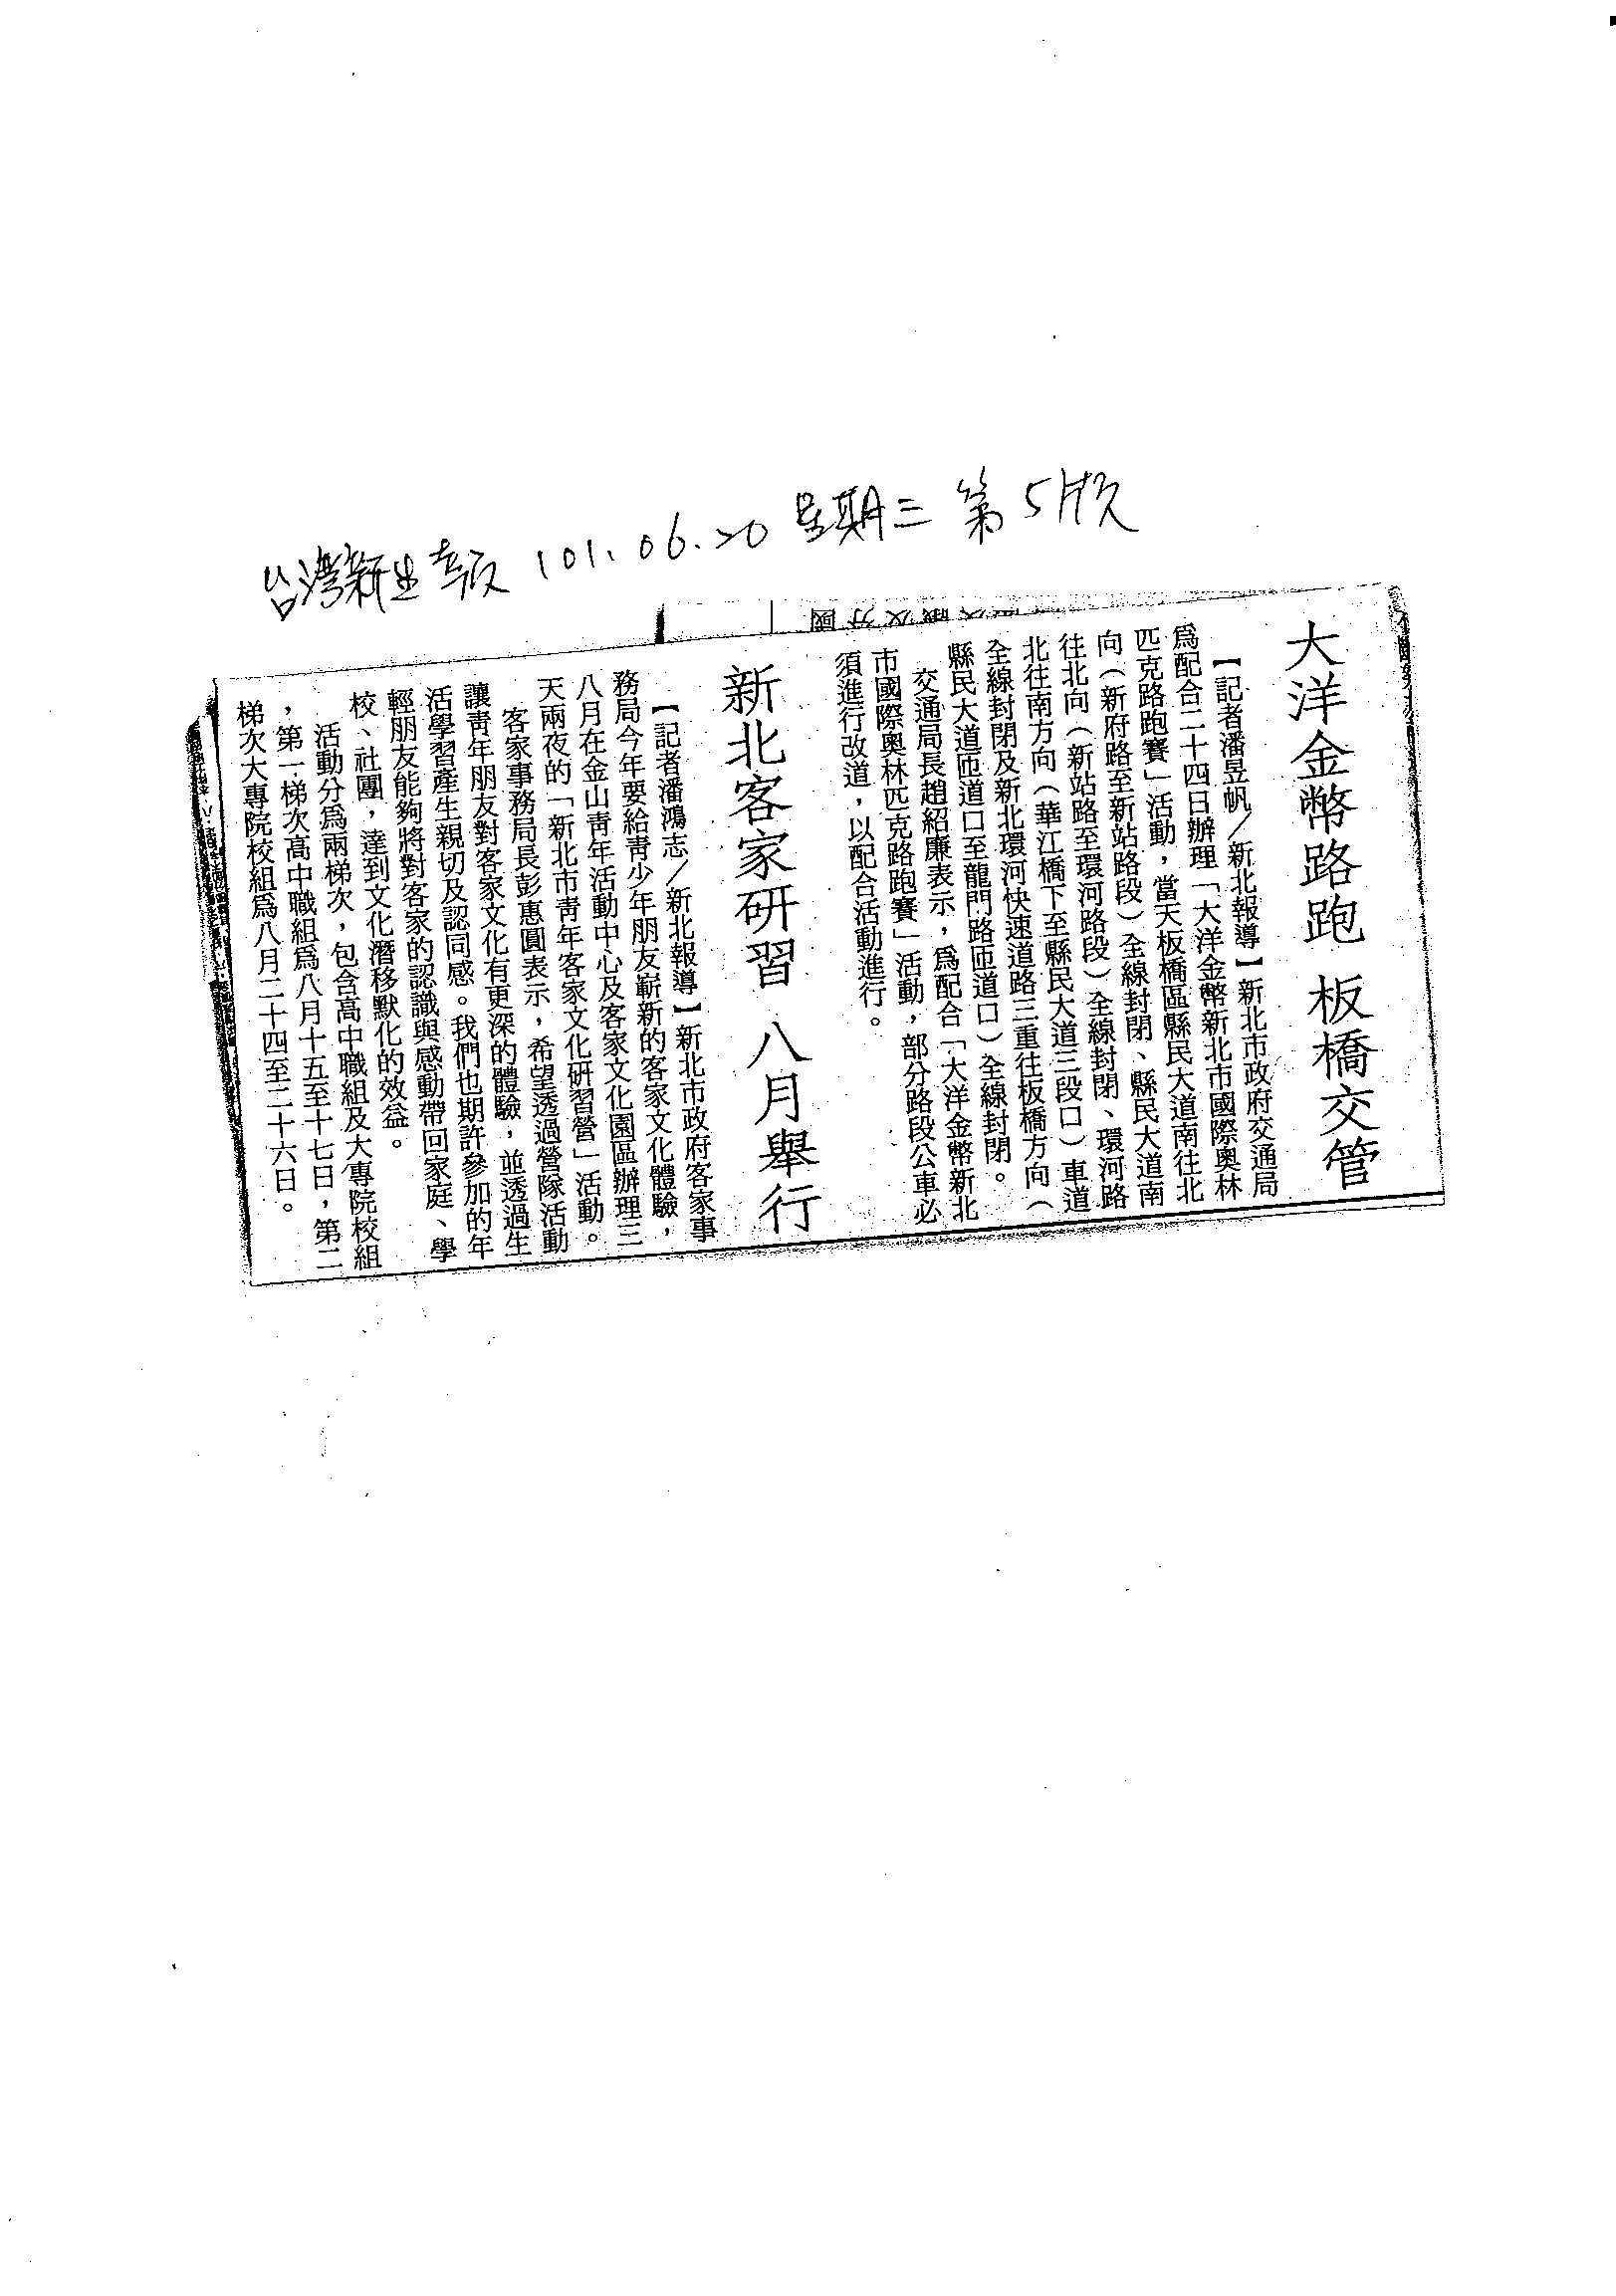 台灣新生報 101.06.20 星期三 第5版
國分及職
大洋金幣路跑 板橋交管
【記者潘昱帆／新北報導】新北市政府交通局
為配合二十四日辦理「大洋金幣新北市國際奧林
匹克路跑賽」活動，當天板橋區縣民大道南往北
向（新府路至新站路段）全線封閉、縣民大道南
往北向（新站路至環河路段）全線封閉、環河路
北往南方向（華江橋下至縣民大道三段口）車道
全線封閉及新北環河快速道路三重往板橋方向（
縣民大道匝道口至龍門路匝道口）全線封閉。
交通局長趙紹廉表示，為配合「大洋金幣新北
市國際奧林匹克路跑賽」活動，部分路段公車必
須進行改道，以配合活動進行。
新北客家研習 八月舉行
【記者潘鴻志／新北報導】新北市政府客家事
務局今年要給青少年朋友嶄新的客家文化體驗，
八月在金山青年活動中心及客家文化園區辦理三
天兩夜的「新北市青年客家文化研習營」活動。
客家事務局長彭惠圓表示，希望透過營隊活動
讓青年朋友對客家文化有更深的體驗，並透過生
活學習產生親切及認同感。我們也期許參加的年
輕朋友能夠將對客家的認識與感動帶回家庭、學
校、社團，達到文化潛移默化的效益。
活動分為兩梯次，包含高中職組及大專院校組
，第一梯次高中職組為八月十五至十七日，第二
梯次大專院校組為八月二十四至二十六日。